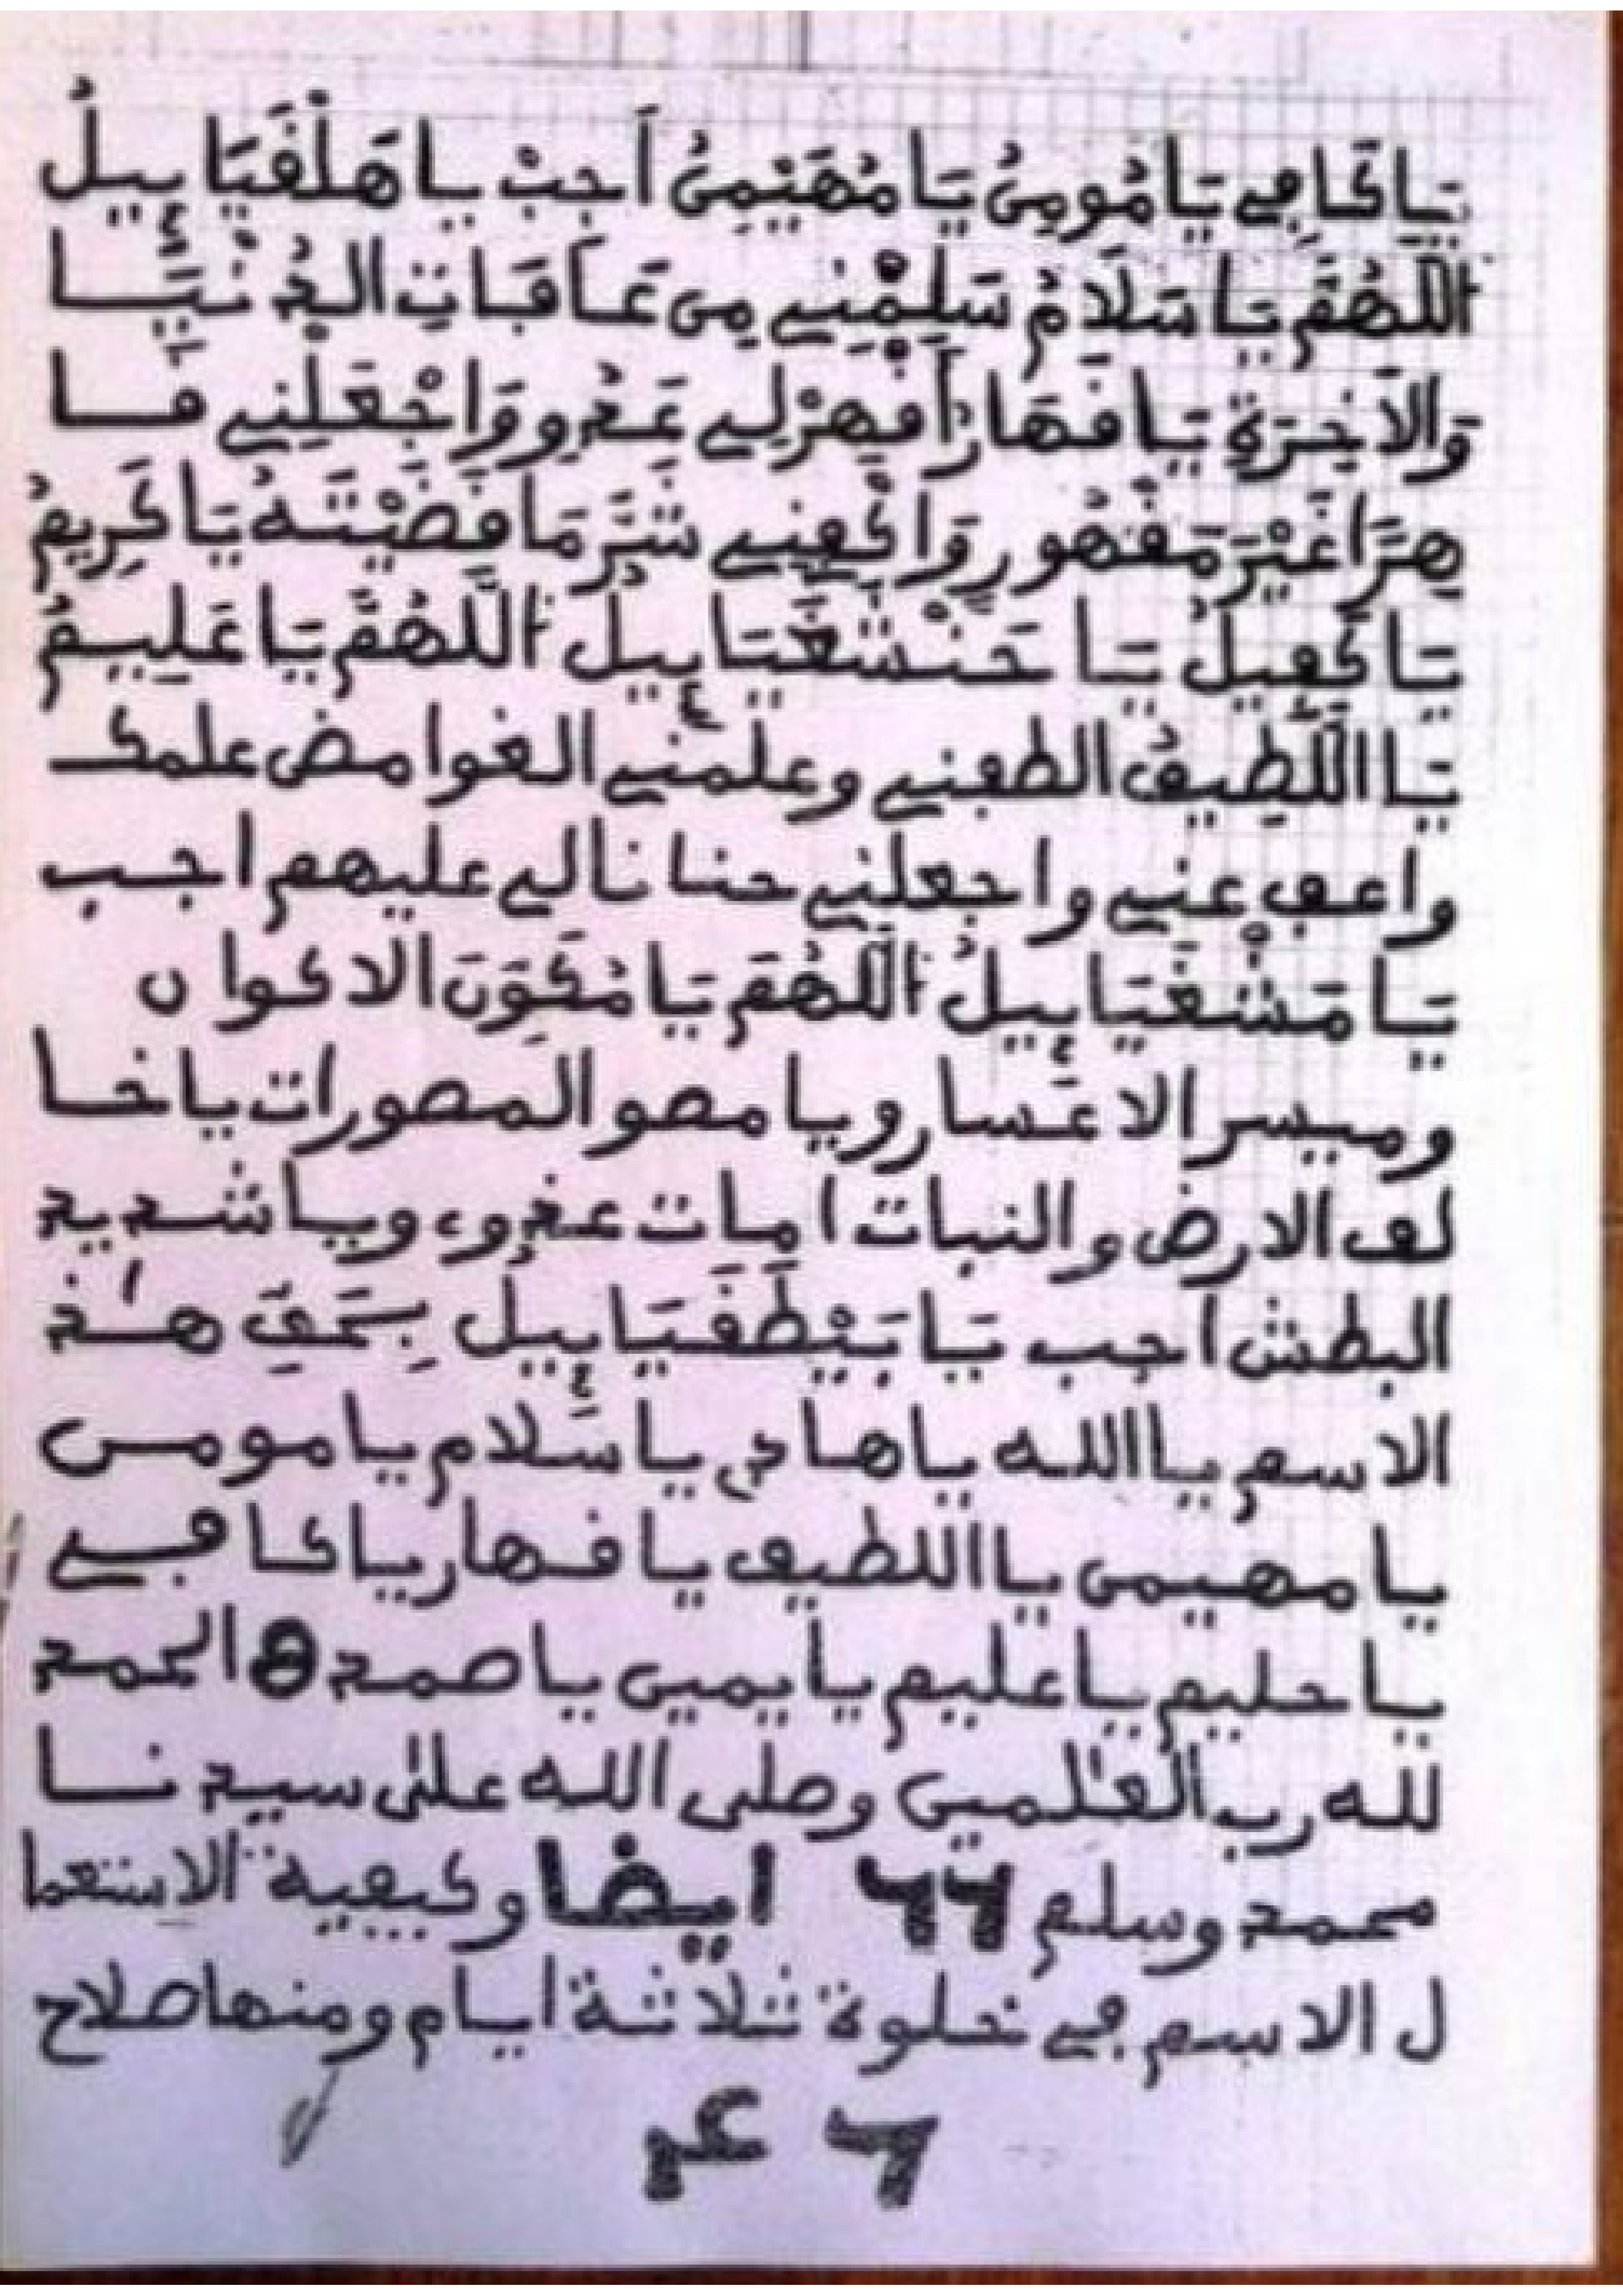 يَا كَافِي يَا مُومِنُ يَا مُهَيْمِنُ أَجِبْ يا هَلْفَيَائِيلُ
اللَّهُمَّ يَا سَلَامُ سَلِّمْنِي مِن عَافَاتِ الدُّنْيَا
وَالآخِرَةِ يَا قَهَارُ أَقْهِرْ لِي عَدُوِّ وَاجْعَلْنِي قَا
هِرًا غَيْرَ مَقْهُورٍ وَاكْفِنِي شَرَّ مَا قَضَيْتَهُ يَا كَرِيمُ
يَا كَفِيلُ يَا حَنْشَغْيَائِيلُ اللَّهُمَّ يَا عَلِيمُ
يَا اللَّطِيفُ الطفني وعلمني الغوامض علمك
واعف عني واجعلني حنانا لي عليهم اجب
يَا مَشْغَيَائِيلُ اللَّهُمَ يَا مُكَوِّنَ الاكوان
وميسر الاعَسار ويا مصو المصورات يا خا
لف الارض والنبات امات عدوء ويا شديد
البطش اجب يَا بَيْطَفَيَائِيلُ بِحَقِّ هٰذ
الاسم يا الله يا هادي يا سَلام يا مومن
يا مهيمن يا اللطيف يا قهار يا كافي
يا حليم يا عليم يا يمين يا صمد الحمد
لله رب العٰلمين وصلى الله على سيدنا
محمد وسلم 66 ايضا وكيفية الاستعما
ل الاسم في خلوة ثلاثة ايام ومنها صلاح